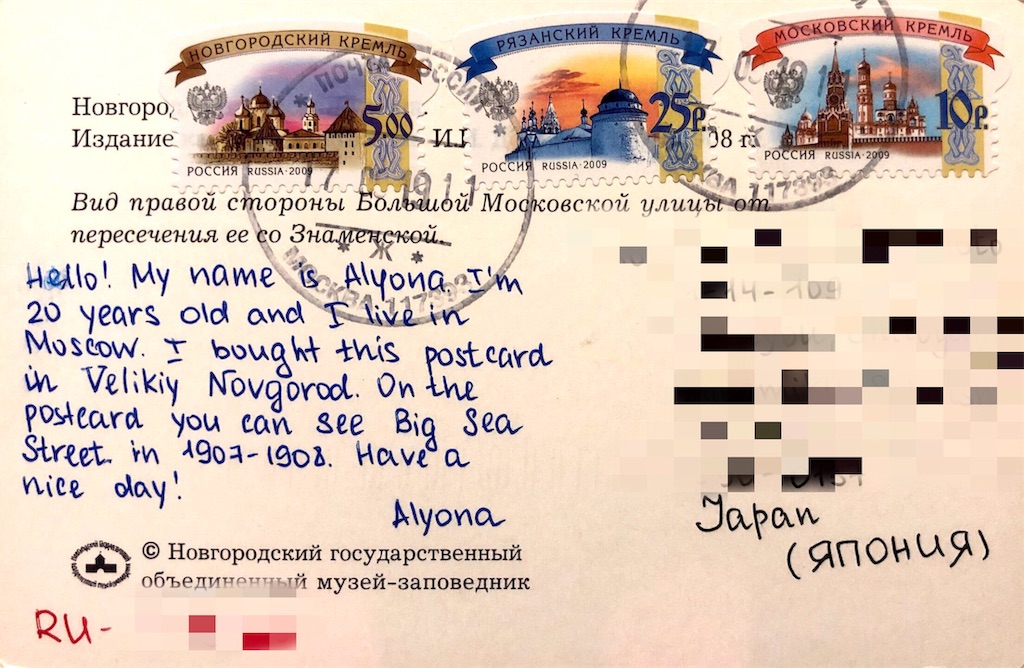 НОВГОРОДСКИЙ КРЕМЛЬ
5.00
РОССИЯ RUSSIA·2009
РЯЗАНСКИЙ КРЕМЛЬ
25Р.
РОССИЯ RUSSIA·2009
МОСКОВСКИЙ КРЕМЛЬ
10Р.
РОССИЯ RUSSIA·2009
ПОЧТА РОССИИ
МОСКВА 117393
Издание
Вид правой стороны Большой Московской улицы от
пересечения ее со Знаменской.
Hello! My name is Alyona. I'm
20 years old and I live in
Moscow. I bought this postcard
in Velikiy Novgorod. On the
postcard you can see Big Sea
Street in 1907-1908. Have a
nice day!
Alyona
Japan
(ЯПОНИЯ)
© Новгородский государственный
объединенный музей-заповедник
RU-